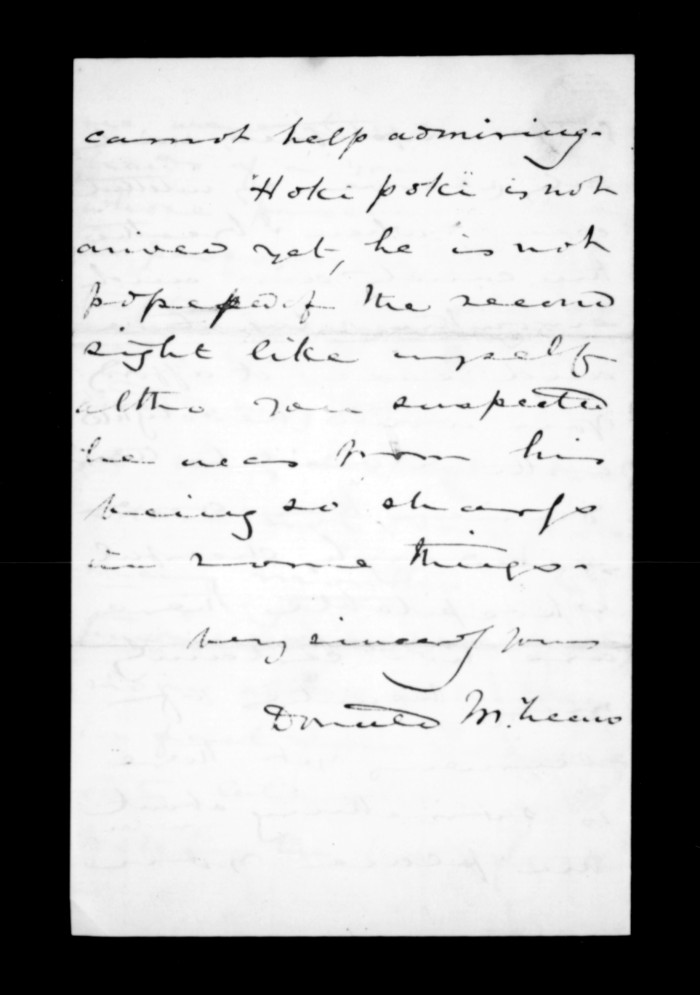 cannot help admiring.
"Hoki poki" is not
arived yet, he is not
possessed of the second
sight like myself
altho you suspected
he was from his
being so sharp
in some things.
Very sincerely yours
Donald McLean